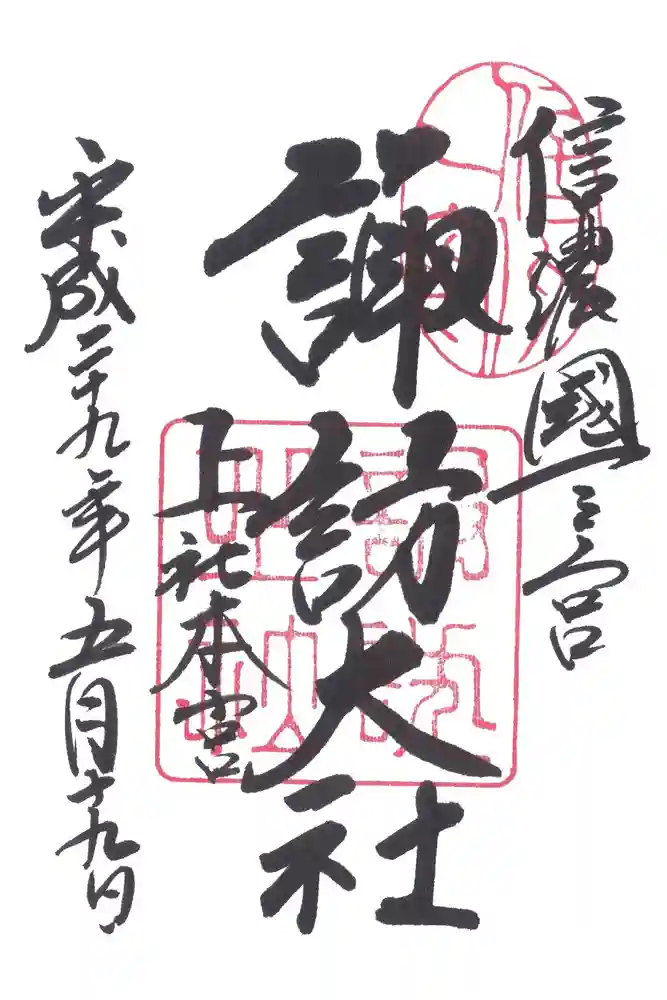 信濃國一之宮
諏訪大社
上社本宮
平成二十九年五月十九日